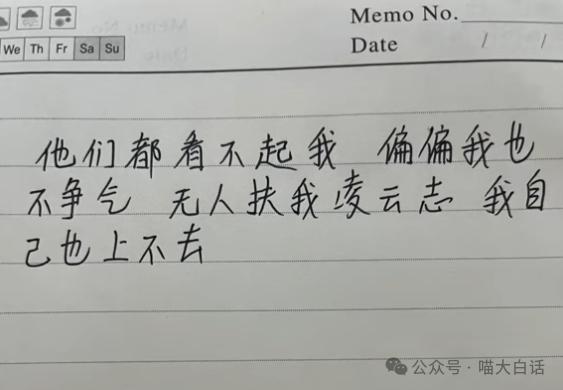 Memo No.
We Th Fr Sa Su
Date / /
他们都看不起我 偏偏我也
不争气 无人扶我凌云志 我自
己也上不去
公众号·喵大白话